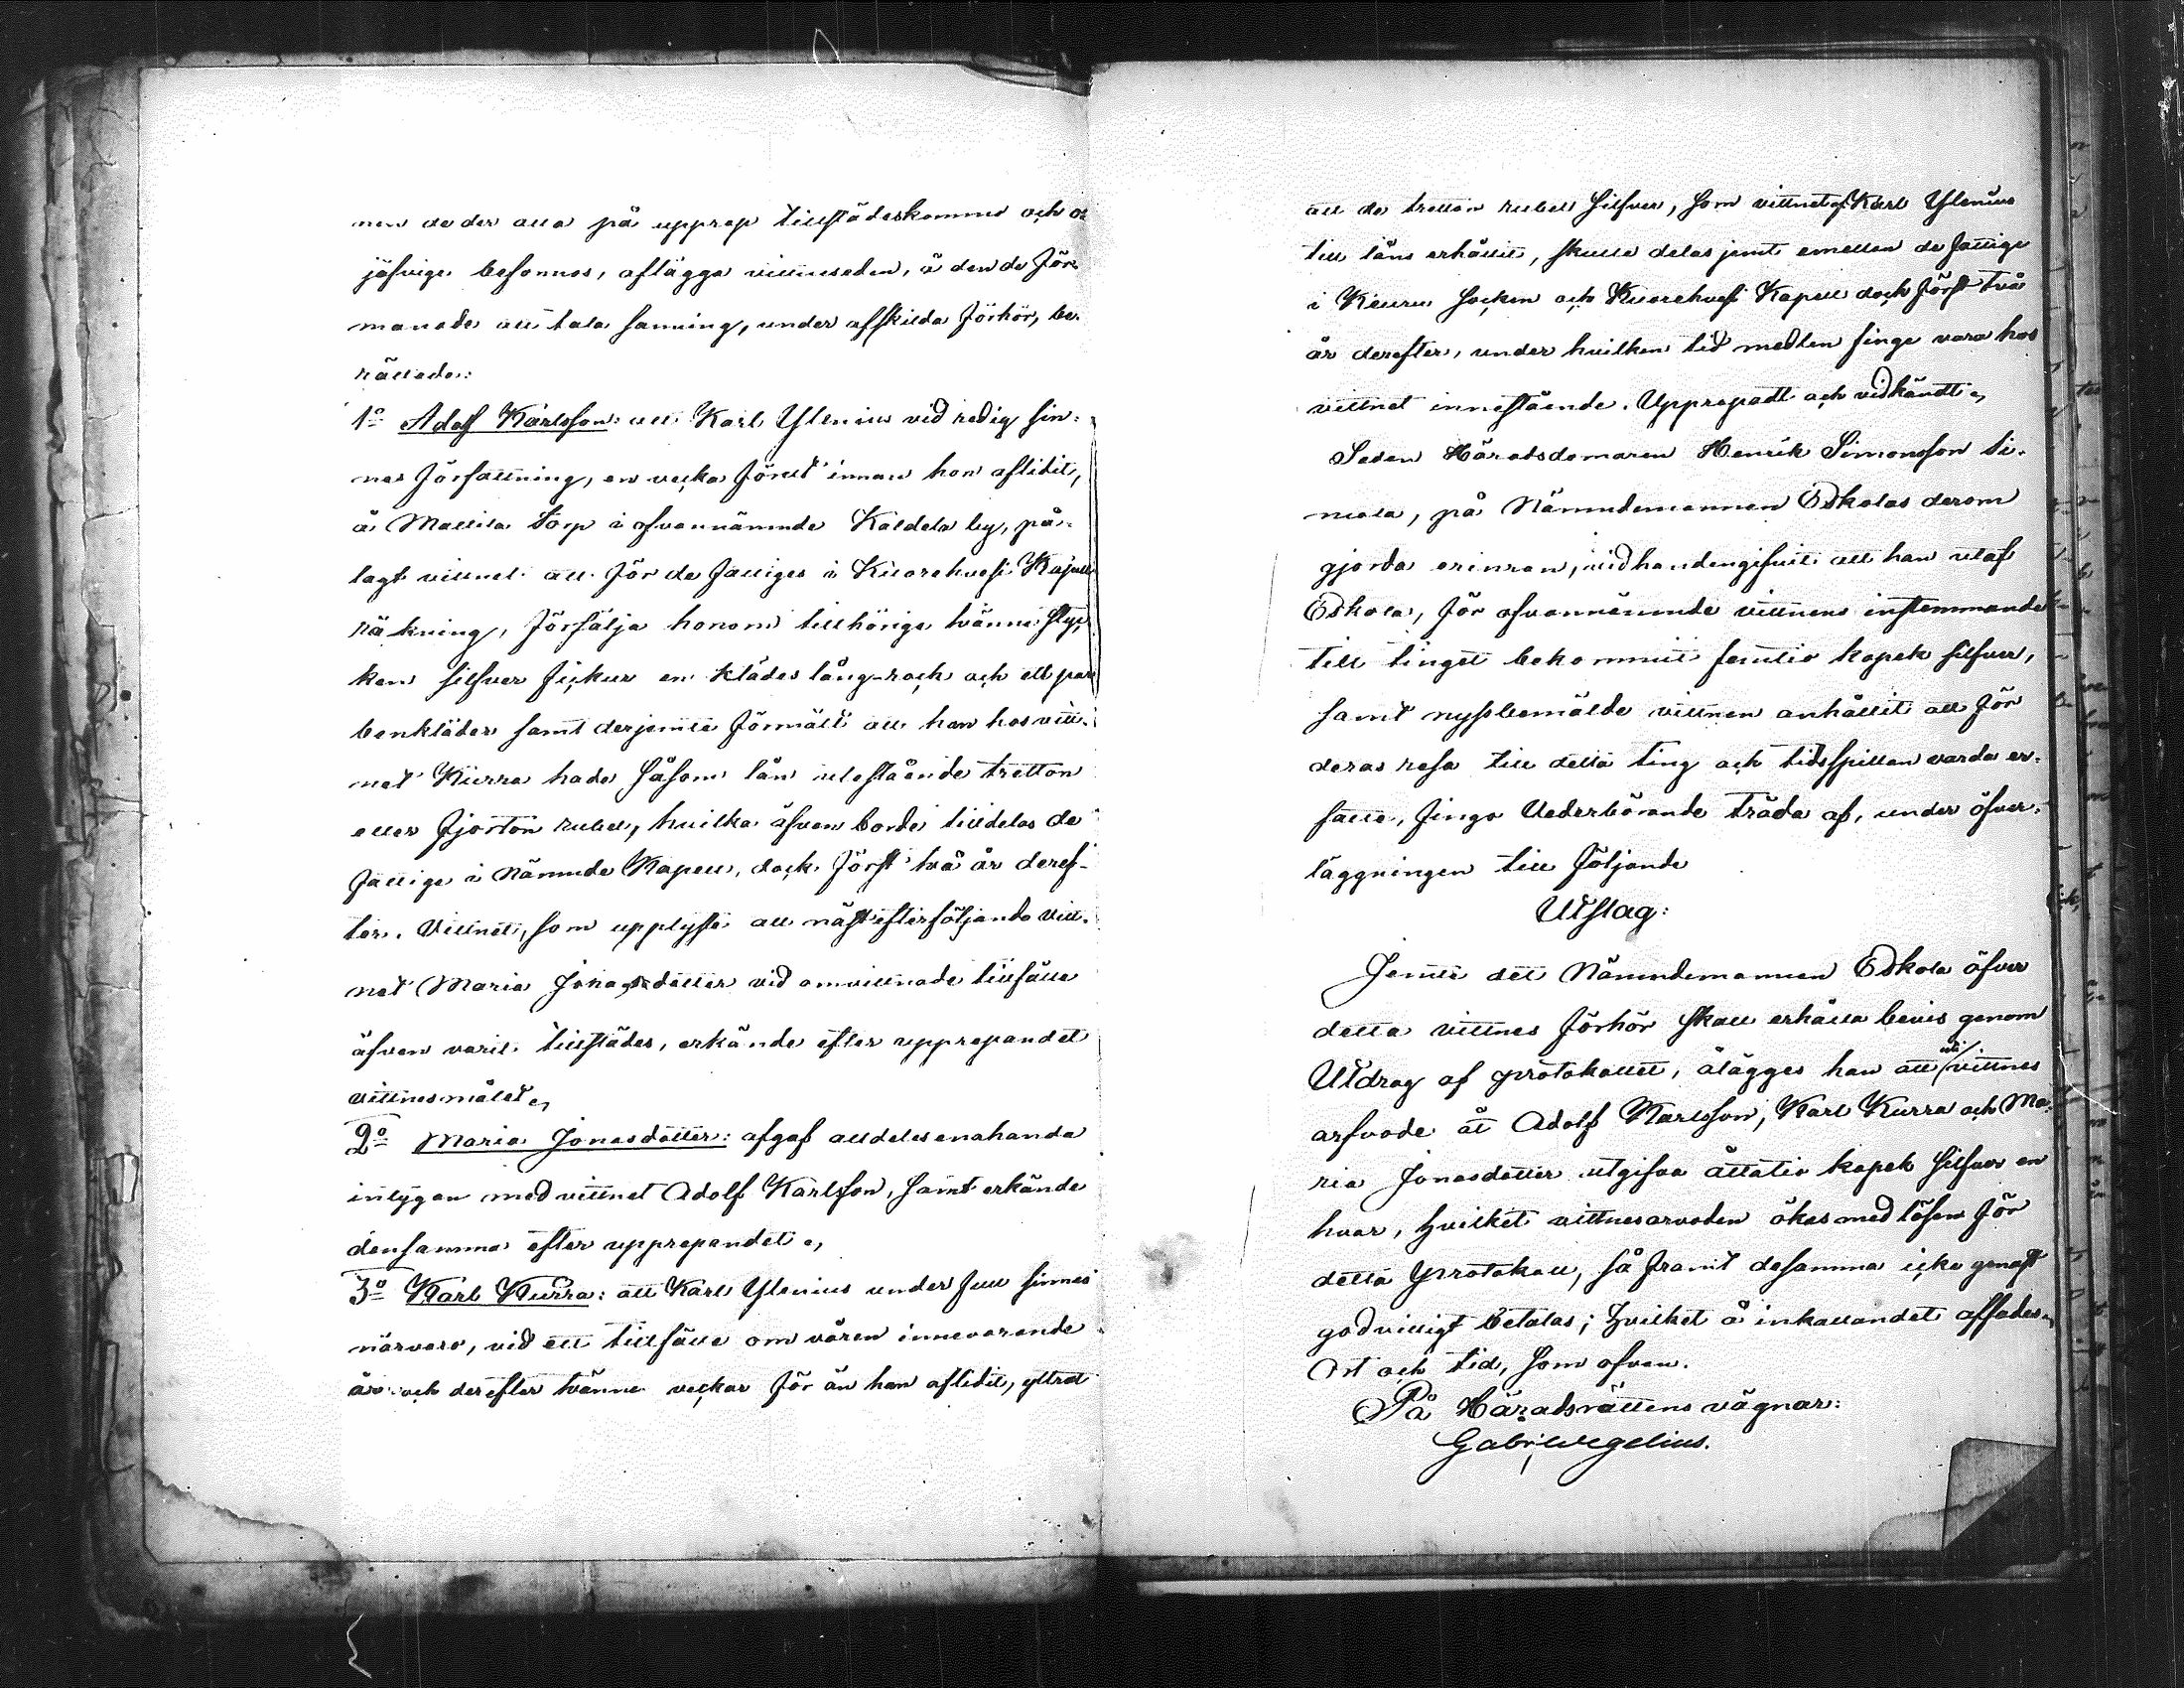 nen de der alla på upprop tillstädeskommo och o
jäfvige befonnos, aflägga vittneseden, å den de för
manade att tala sanning, under afskilda förhör, be-
rättade:
1o Adolf Karlsson: att Karl Ylenius vid redig sin-
nes författning, en vecka förut innan han aflidit,
å Mattila Torp i ofvannämnde Kaldela by, på-
lagt vittnet att för de fattiges i Kuorehvesi Kapells
räkning, försälja honom tillhörige tvänne styc-
ken silfver fickur en klädes lång-rock och ett par
benkläder samt derjemte förmält att han hos vitt-
net Kurra hade såsom lån utestående tretton
eller fjorton rubel, hvilka äfven borde tilldelas de
fattige i nämnde Kapell, dock först två år deref-
ter. Vittnet, som upplyste att näst efterföljande vitt-
net Maria Jonasdotter vid omvittnade tillfälle
äfven varit tillstädes, erkände efter upprepandet
vittnesmålet.
2o Maria Jonasdotter: afgaf alldeles enahanda
intygan med vittnet Adolf Karlsson, samt erkände
densamma efter upprepandet.
3o Karl Kurra: att Karl Ylenius under full sinnes
närvaro, vid ett tillfälle om våren innevarande
år och derefter tvänne veckor för än han aflidit, yttrat
att de tretton rubel silfver, som vittnet af Karl Ylenius
till låns erhållit, skulle delas jemt emellan de fattige
i Keuru Socken och Kuorehvesi Kapell dock först två
år derefter, under hvilken tid medlen finge vara hos
vittnet innestående. Upprepadt och vidkändt.
Sedan Häradsdomaren Henrik Simonsson Si-
mola, på Nämndemannen Eskolas derom
gjorda erinran, vidhandengifvit att han utaf
Eskola, för ofvannämnde vittnens instemmande
till tinget bekommit femtio kopek silfver,
samt nyssbemälde vittnen anhållit att för
deras resa till detta ting och tidsspillan varda er-
satte, fingo Vederbörande träda af, under öfver-
läggningen till följande
Utslag:
Jemte det Nämndemannen Eskola öfver
detta vittnes förhör skall erhålla bevis genom
Utdrag af protokollet, ålägges han att uti vittnes
arfvode åt Adolf Karlsson, Karl Kurra och Ma-
ria Jonasdotter utgifva åttatio kopek silfver en
hvar, hvilket vittnesarvoden ökas med lösen för
detta Protokoll, så framt desamma icke genast
godvilligt betalas; hvilket å inkallandet afsades.
Ort och tid, som ofvan.
På Häradsrättens vägnar:
Gabr Wegelius.